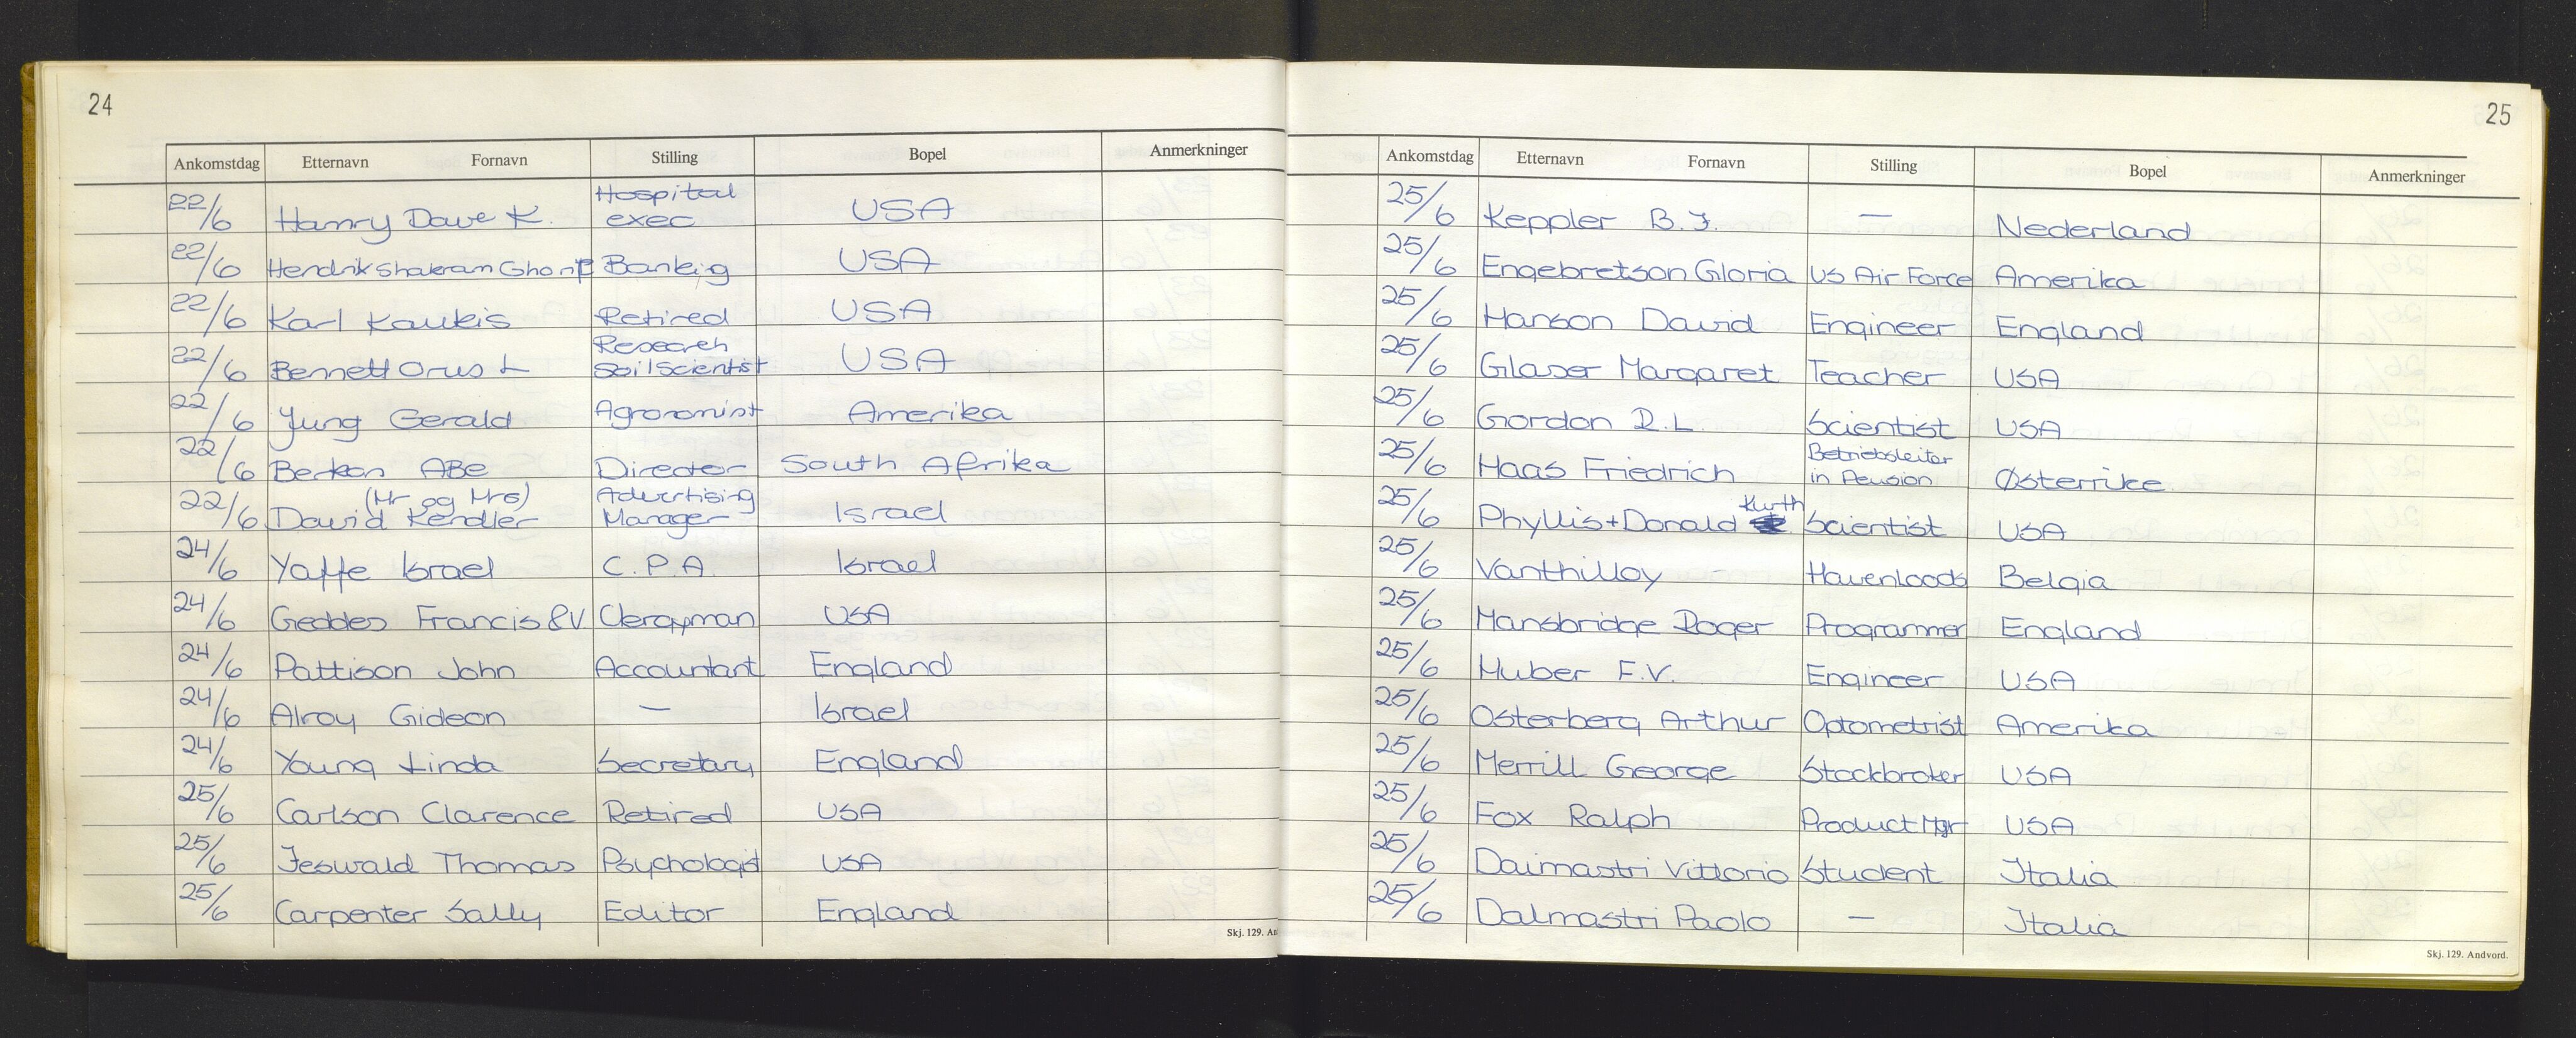 24
Ankomstdag Etternavn Fornavn Stilling Bopel Anmerkninger
22/6 Hamry Dave K. Hospital exec USA
22/6 Hendrik Shakram Banking USA
22/6 Karl Kaukis Retired USA
22/6 Bennett Orus L Research Soil Scientist USA
22/6 Jung Gerald Agronomist Amerika
22/6 Berkon ABe Director South Afrika
22/6 David Kendler (Mr og Mrs) Advertising Manager Israel
24/6 Yaffe Israel C.P.A. Israel
24/6 Geddes Francis &V Clergyman USA
24/6 Pattison John Accountant England
24/6 Alroy Gideon — Israel
24/6 Young Linda Secretary England
25/6 Carlson Clarence Retired USA
25/6 Jeswald Thomas Psychologist USA
25/6 Carpenter Sally Editor England
Skj. 129. An
25
Ankomstdag Etternavn Fornavn Stilling Bopel Anmerkninger
25/6 Keppler B.J. — Nederland
25/6 Engebretson Gloria US Air Force Amerika
25/6 Hanson David Engineer England
25/6 Glaser Margaret Teacher USA
25/6 Gordon R.L. Scientist USA
25/6 Haas Friedrich Betriebsleiter in Pension Østerrike
25/6 Phyllis+Donald Kurth Scientist USA
25/6 Vanthilloy Havenloods Belgia
25/6 Mansbridge Roger Programmer England
25/6 Huber F.V. Engineer USA
25/6 Osterberg Arthur Optometrist Amerika
25/6 Merrill George Stockbroker USA
25/6 Fox Ralph Product Mgr USA
25/6 Daimastri Vittorio Student Italia
25/6 Dalmastri Paolo — Italia
Skj. 129. Andvord.